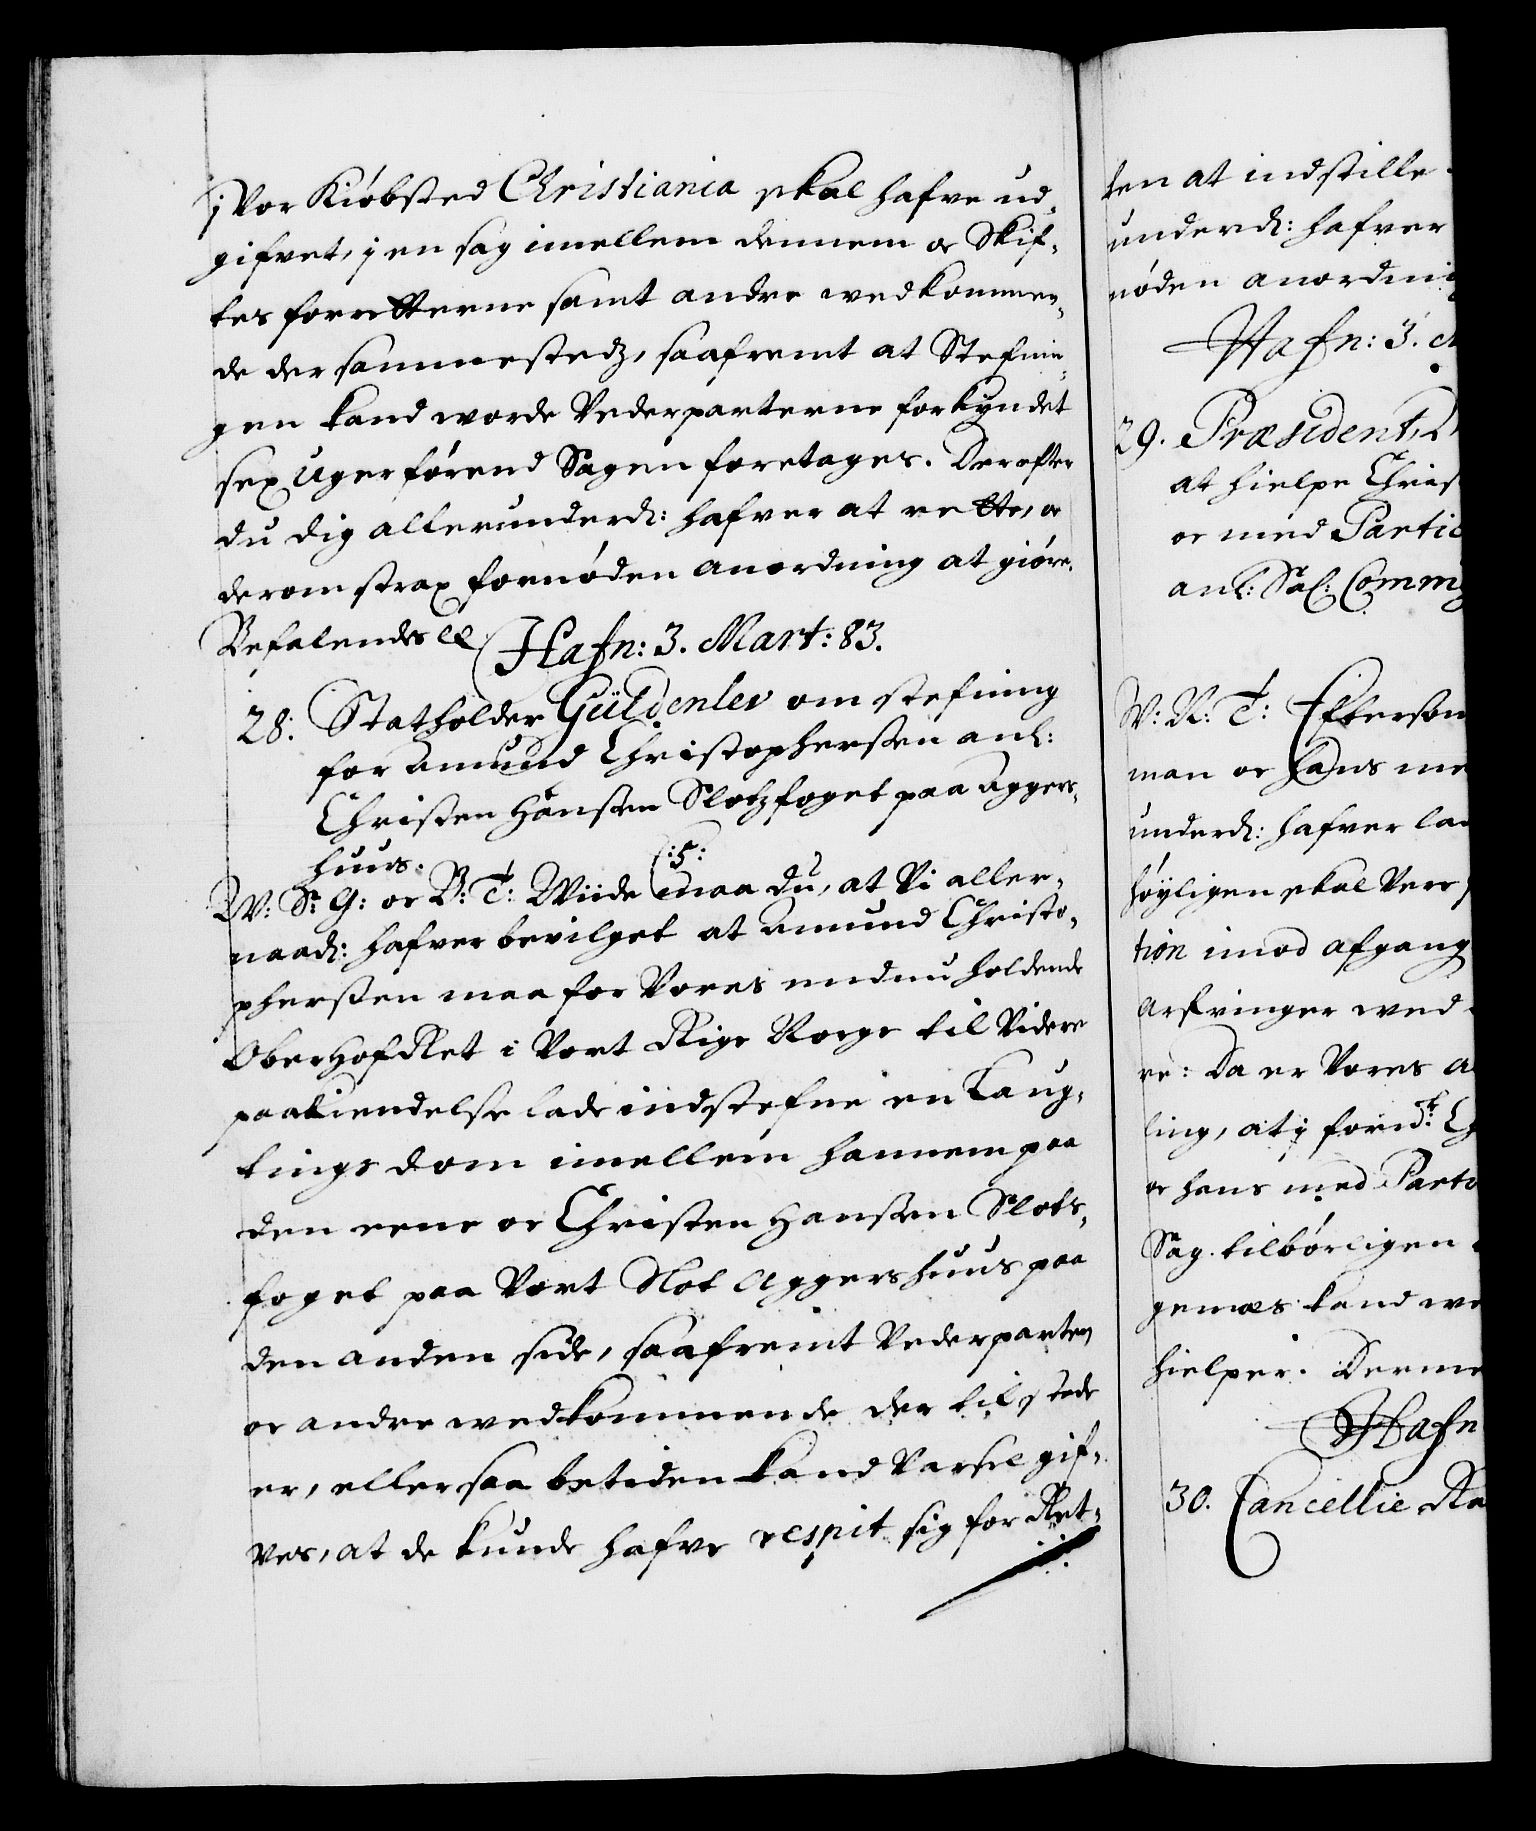 i Vor Kiøbsted Christiania skal hafve ud-
gifvet, i en sag imellem dennem oc Skif-
tes forretterne samt andre wedkommen-
de der sammestedz, saafremt at Stefnin-
gen kand worde Vederparterne forkyndet
sex Uger førend Sagen foretages. Derefter
du dig allerunderd: hafver at rette, oc
derom strax fornøden anordning at giøre.
Befalendes ec Hafn: 3. Mart: 83.
28. Statholder Güldenlev om stefning
for Amund Christophersen anl:
Christen Hansen Slotzfoget paa Aggers-
huus. (:5:
W: S: G: oc B: T: Wiide maa du, at Vi aller-
naad: hafver bevilget at Amund Christo-
phersen maa for Vores nu holdende
OberhofRet i Vort Rige Norge til Videre
paakiendelse lade indstefne en Laug-
tings dom imellem hannem paa
den eene oc Christen Hansen Slots-
foget paa Vort Slot Aggershuus paa
den anden side, saafremt Vederparten
oc andre wedkommende der tilstede
er, eller saa betiden kand Varsel gif-
ves, at de kunde hafve respit sig for Ret-
ten at indstille.
underd: hafver
nøden anordning
Hafn: 3. M
29. Præsident,
at hielpe Chris
oc med Partic
anl: Sal: Commis
W: N: T: Efftersom
man oc hans me
underd: hafver lad
høyligen skal Vere
tion imod afgang
arfvinger wed
re: Da er Vores A
ling, at i forn: Ch
oc hans med Parti
Sag tilbørligen
gemæs kand we
hielper. Derme
Hafn
30. Cancellie Ra